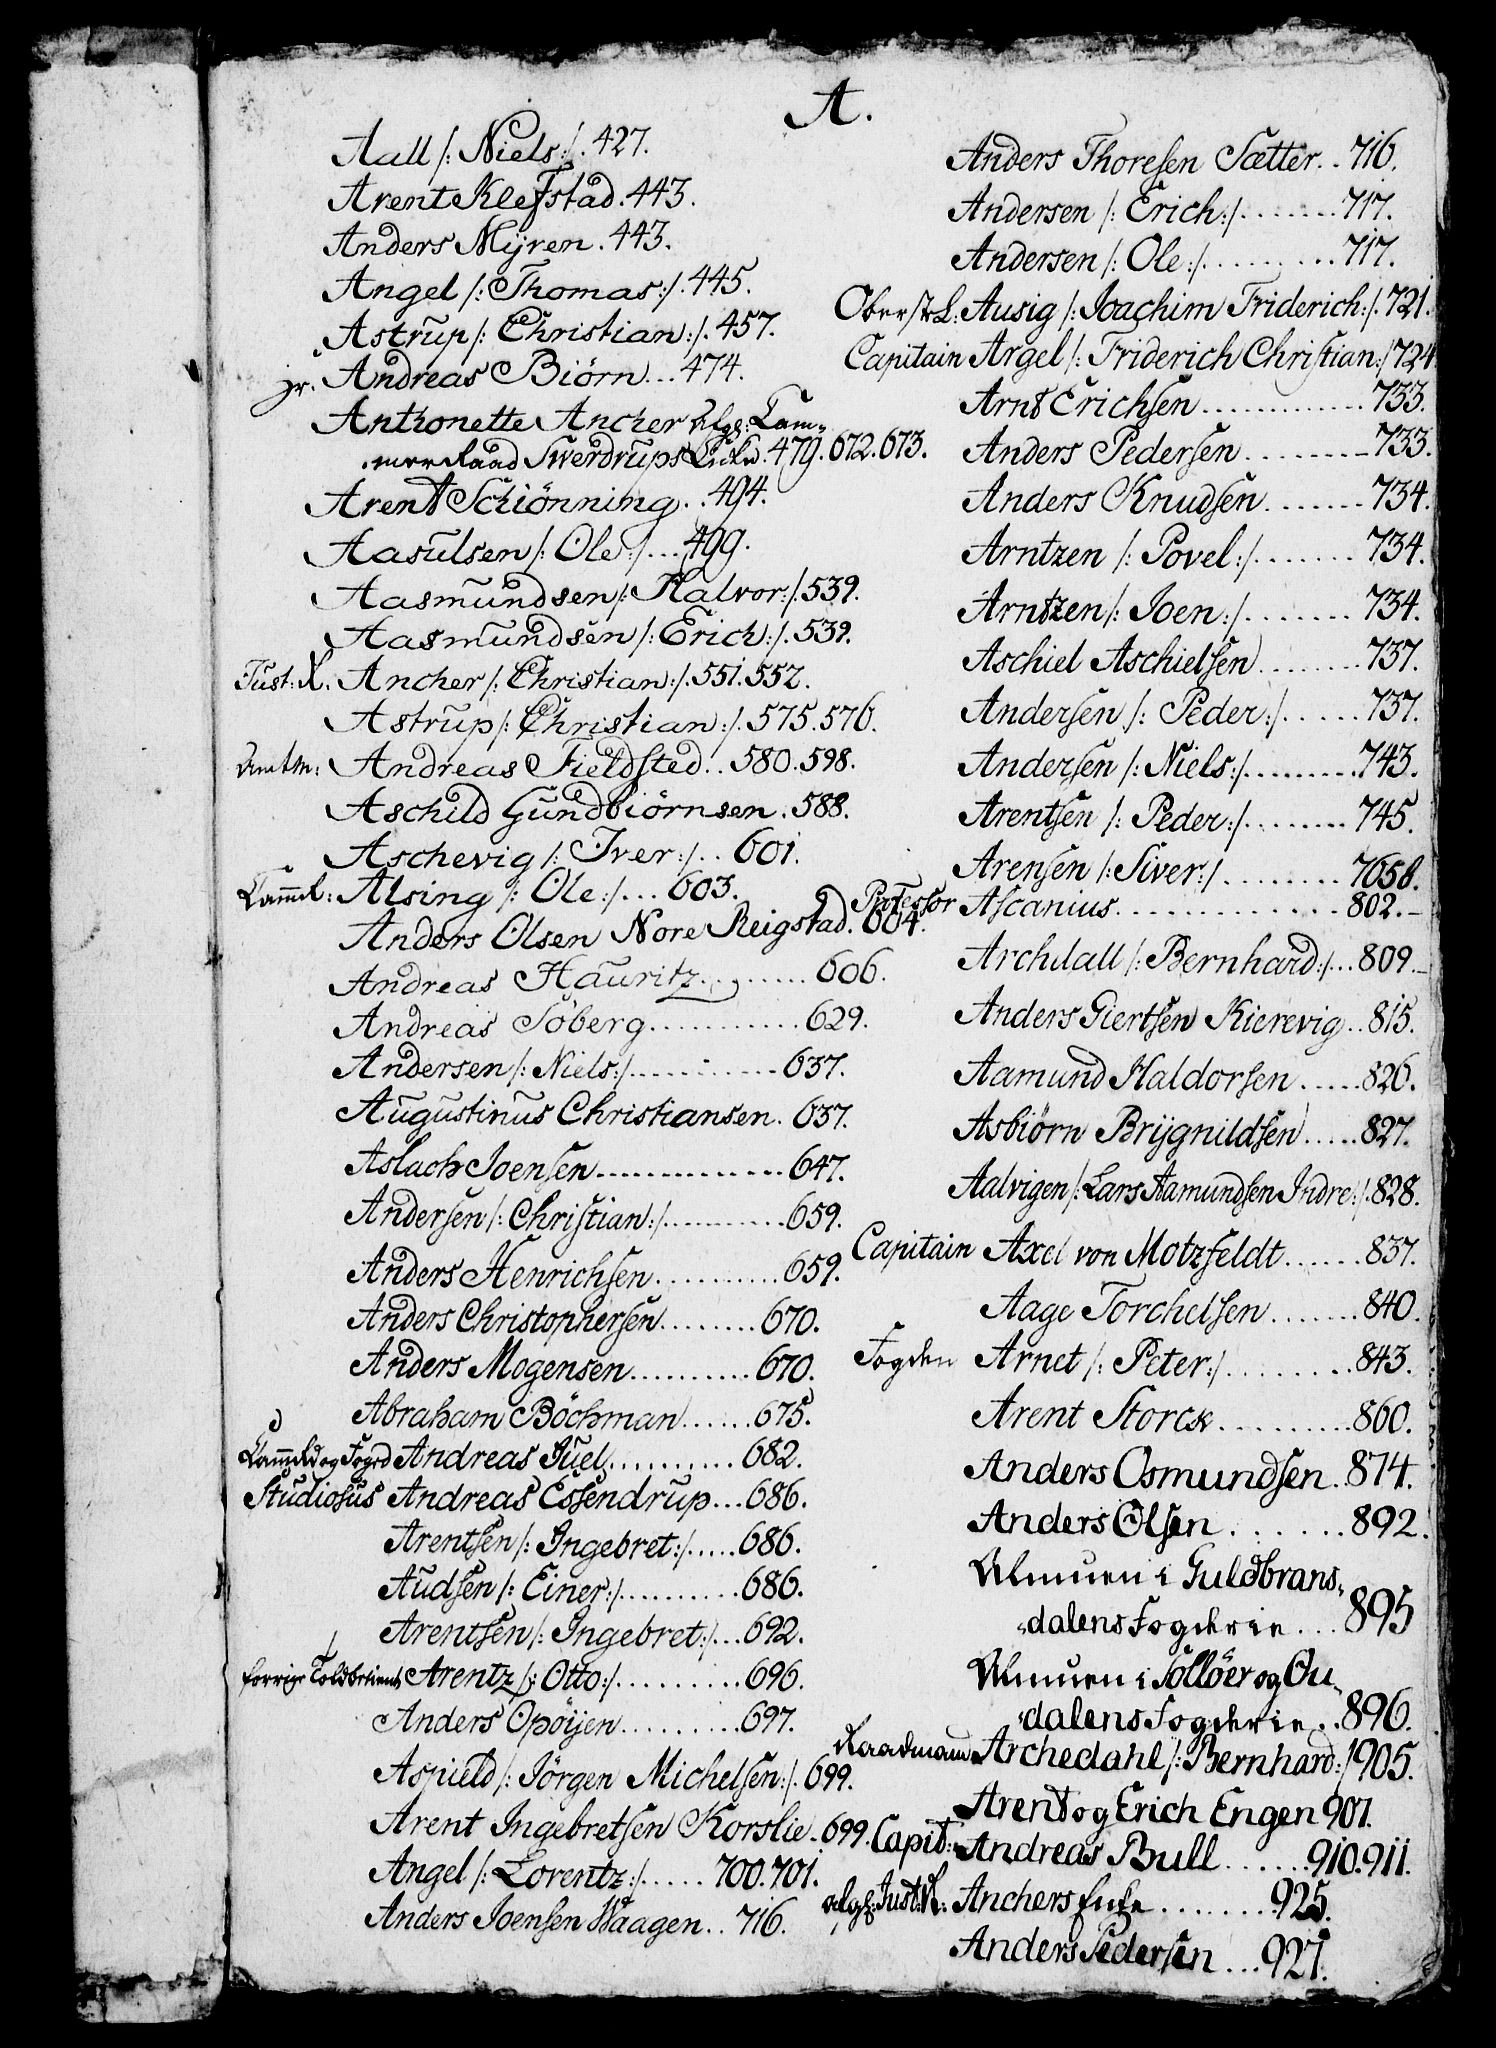 A.
Aall /: Niels:/. 427.
Arent Klefstad. 443.
Anders Myren. 443.
Angel /: Thomas:/. 445.
Astrup /: Christian:/. 457.
jr. Andreas Biörn... 474.
Anthonette Ancher Afgg: Cam=
merRaad Swerdrups Encke. 479. 672. 673.
Arent Schiönning.. 494.
Aasulsen /: Ole:/... 499.
Aasmundsen /: Halvor:/. 539.
Aasmundsen /: Erich:/. 539.
Just: R. Ancher /: Christian:/. 551. 552.
Astrup /: Christian:/. 575. 576.
Amtm: Andreas Fieldsted.. 580. 598.
Aschild Gundbiörnsen. 588.
Aschevig /: Iver:/.. 601.
Cammr: Alsing /: Ole:/... 603.
Anders Olsen Nore Reigstad. 604.
Andreas Hauritz......... 606.
Andreas Söberg............ 629.
Andersen /: Niels:/............ 637.
Augustinus Christiansen. 637.
Aslach Joensen............... 647.
Andersen /: Christian:/............ 659.
Anders Henrichsen............ 659.
Anders Christophersen......... 670.
Anders Mogensen........... 670.
Abraham Böchman...... 675.
CammRd og Foged Andreas Juel........... 682.
Studiosus Andreas Essendrup... 686.
Arentsen /: Ingebret:/..... 686.
Audsen /: Einer:/.......... 686.
Arentsen /: Ingebret:/... 692.
forrige Toldbetient Arentz /: Otto:/.......... 696.
Anders Opöyen.......... 697.
/: Jörgen Michelsen:/. 699.
Arent Ingebretsen Korslie. 699.
Angel /: Lorentz:/..... 700. 701.
Anders Joensen Haagen.. 716.
Anders Thoresen Sætter.. 716.
Andersen /: Erich:/........ 717.
Andersen /: Ole:/.......... 717.
OberstL: Ausig /: Joachim Friderich:/. 721.
Capitain Argel /: Friderich Christian:/ 724
Arnt Erichsen............. 733.
Anders Pedersen......... 733.
Anders Knudsen........ 734.
Arntzen /: Povel:/........ 734.
Arntzen /: Joen:/........ 734.
Aschiel Aschielsen........ 737.
Andersen /: Peder:/...... 737.
Andersen /: Niels:/.......... 743.
Arentsen /: Peder:/......... 745.
Arensen /: Siver:/......... 7658.
Professor Ascanius............... 802.
Archdall /: Bernhard:/... 809.
Anders Giertsen Kierevig.. 815.
Aamund Haldorsen..... 826.
Asbiörn Brygnildsen..... 827.
Aalvigen /: Lars Aamundsen Indre:/. 828.
Capitain Axel von Motzfeldt...... 837.
Aage Torchelsen....... 840.
Fogden Arnet /: Peter:/......... 843.
Arent Storck.......... 860.
Anders Osmundsen.. 874.
Anders Olsen....... 892.
Almuen i Guldbrans=
dalens Fogderie... 895
Almuen i Sollöer og Ou=
dalens Fogderie.. 896.
Raadmand Archedahl /: Bernhard:/ 905.
Arent og Erich Engen 901.
Capit: Andreas Bull...... 910. 911.
afgg: Just: R: Anchers Enke....... 925.
Anders Pedersen... 927.